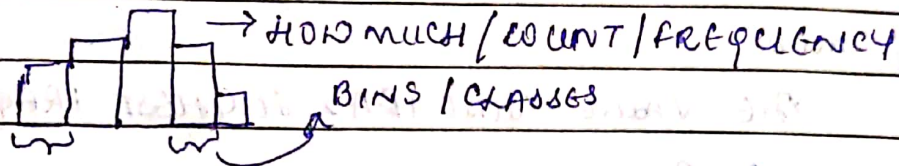 → HOW MUCH / COUNT / FREQUENCY
BINS / CLASSES